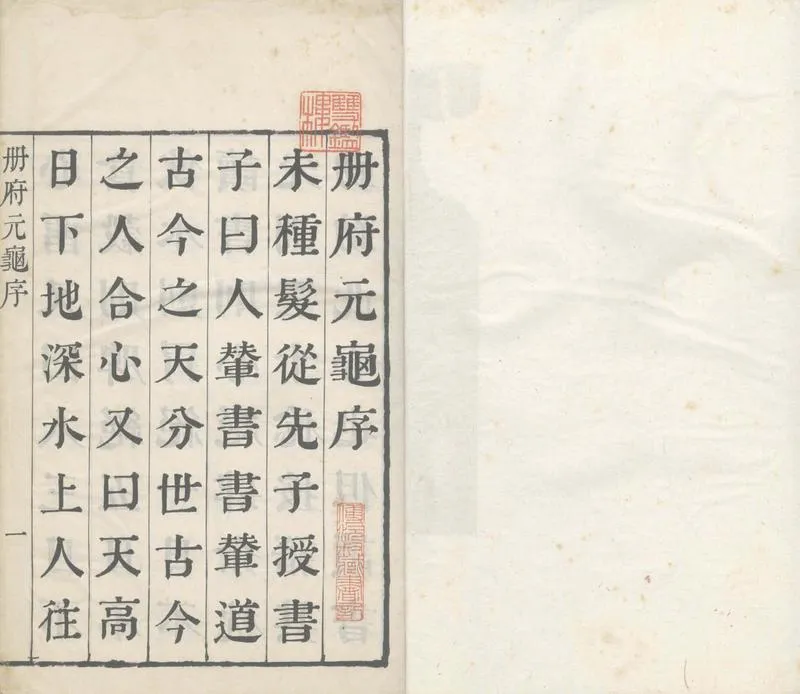 册府元龜序
未種髮從先子授書
子曰人輦書書輦道
古今之天分世古今
之人合心又曰天高
日下地深水上人往
册府元龜序
一
雙鑑樓